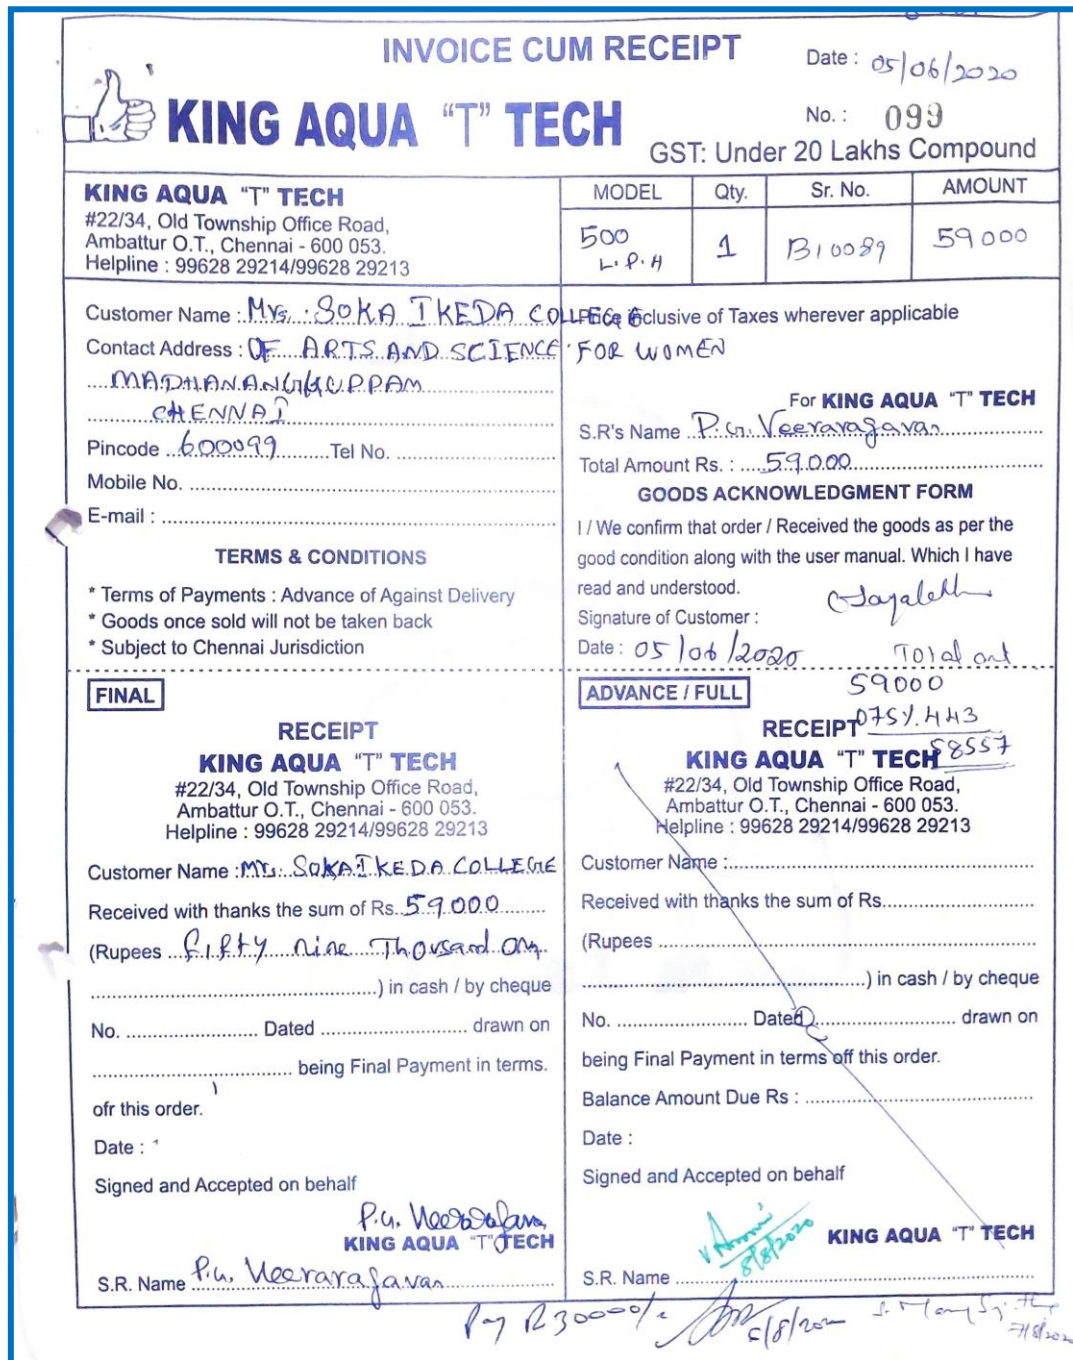 INVOICE CUM RECEIPT
Date : 05/06/2020
KING AQUA "T" TECH
No. : 099
GST: Under 20 Lakhs Compound
KING AQUA "T" TECH
#22/34, Old Township Office Road,
Ambattur O.T., Chennai - 600 053.
Helpline : 99628 29214/99628 29213
MODEL Qty. Sr. No. AMOUNT
500 L.P.H 1 B10089 59000
Customer Name : Mrs. SOKA IKEDA COLLEGE
Contact Address : OF ARTS AND SCIENCE FOR WOMEN
MADHANANGKUPPAM
CHENNAI
Pincode 600099 Tel No.
Mobile No.
E-mail :
TERMS & CONDITIONS
* Terms of Payments : Advance of Against Delivery
* Goods once sold will not be taken back
* Subject to Chennai Jurisdiction
Price Inclusive of Taxes wherever applicable
For KING AQUA "T" TECH
S.R's Name P.G. Veeraragavan
Total Amount Rs. : 59000
GOODS ACKNOWLEDGMENT FORM
I / We confirm that order / Received the goods as per the
good condition along with the user manual. Which I have
read and understood.
Signature of Customer :
Date : 05/06/2020
Total amt
59000
075%. 443
58557
FINAL
RECEIPT
KING AQUA "T" TECH
#22/34, Old Township Office Road,
Ambattur O.T., Chennai - 600 053.
Helpline : 99628 29214/99628 29213
Customer Name : Mrs. SOKA IKEDA COLLEGE
Received with thanks the sum of Rs. 59000
(Rupees fifty nine Thousand only
) in cash / by cheque
No. Dated drawn on
being Final Payment in terms.
ofr this order.
Date :
Signed and Accepted on behalf
P.G. Veeraragavan
KING AQUA "T" TECH
S.R. Name P.G. Veeraragavan
ADVANCE / FULL
RECEIPT
KING AQUA "T" TECH
#22/34, Old Township Office Road,
Ambattur O.T., Chennai - 600 053.
Helpline : 99628 29214/99628 29213
Customer Name :
Received with thanks the sum of Rs.
(Rupees
) in cash / by cheque
No. Dated drawn on
being Final Payment in terms off this order.
Balance Amount Due Rs :
Date :
Signed and Accepted on behalf
8/8/2020
KING AQUA "T" TECH
S.R. Name
Pay R 30000/-
7/8/2020